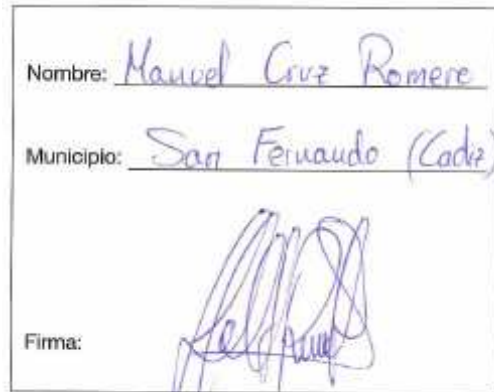 Nombre: Manuel Cruz Romere
Municipio: San Fernando (Cadiz)
Firma: